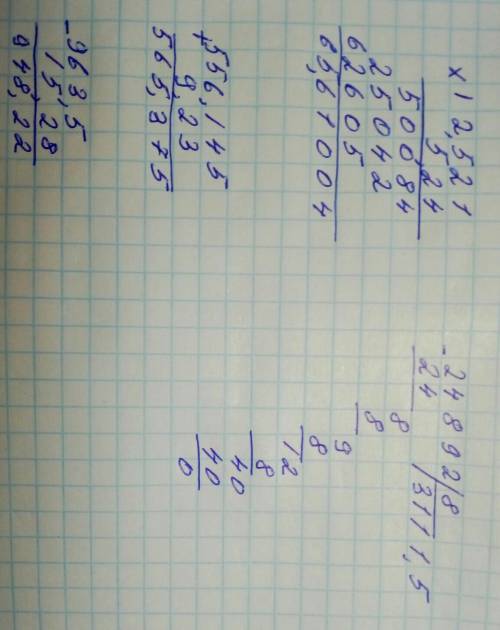 x 12,521
5,24
50084
25042
62605
65,61004
-24892|8
24 |3111,5
8
8
9
8
12
8
40
40
0
+556,145
9,23
565,375
-963,5
15,28
948,22